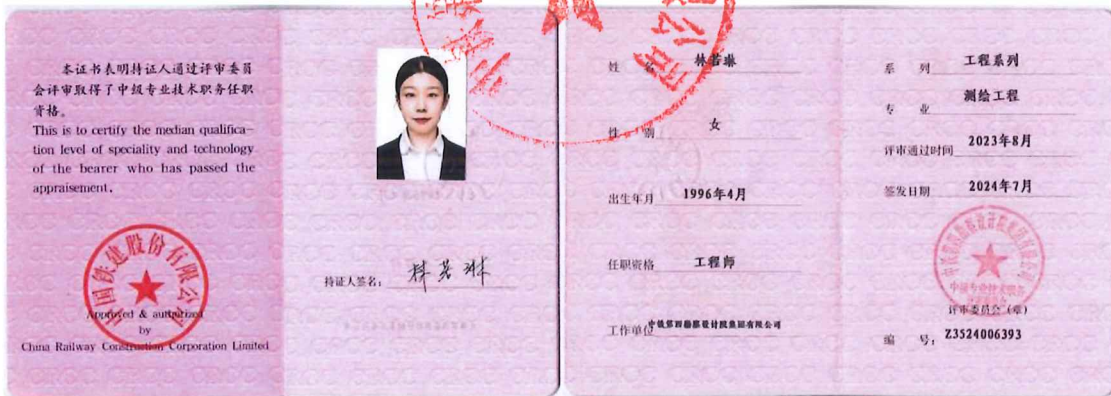 本证书表明持证人通过评审委员
会评审取得了中级专业技术职务任职
资格。
This is to certify the median qualifica-
tion level of speciality and technology
of the bearer who has passed the
appraisement.
中国铁建股份有限公司
Approved & authorized
by
China Railway Construction Corporation Limited
持证人签名：林若琳
姓 名 林若琳
性 别 女
出生年月 1996年4月
任职资格 工程师
工作单位 中铁第四勘察设计院集团有限公司
系 列 工程系列
专 业 测绘工程
评审通过时间 2023年8月
签发日期 2024年7月
中级专业技术职务
评审委员会（章）
编 号：Z3524006393